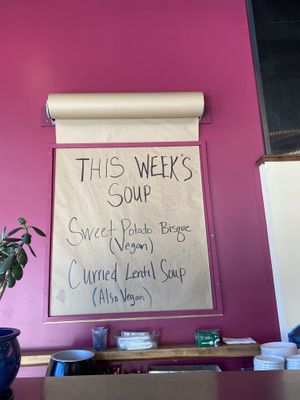 THIS WEEK'S
SOUP
Sweet Potato Bisque
(Vegan)
Curried Lentil Soup
(Also Vegan)